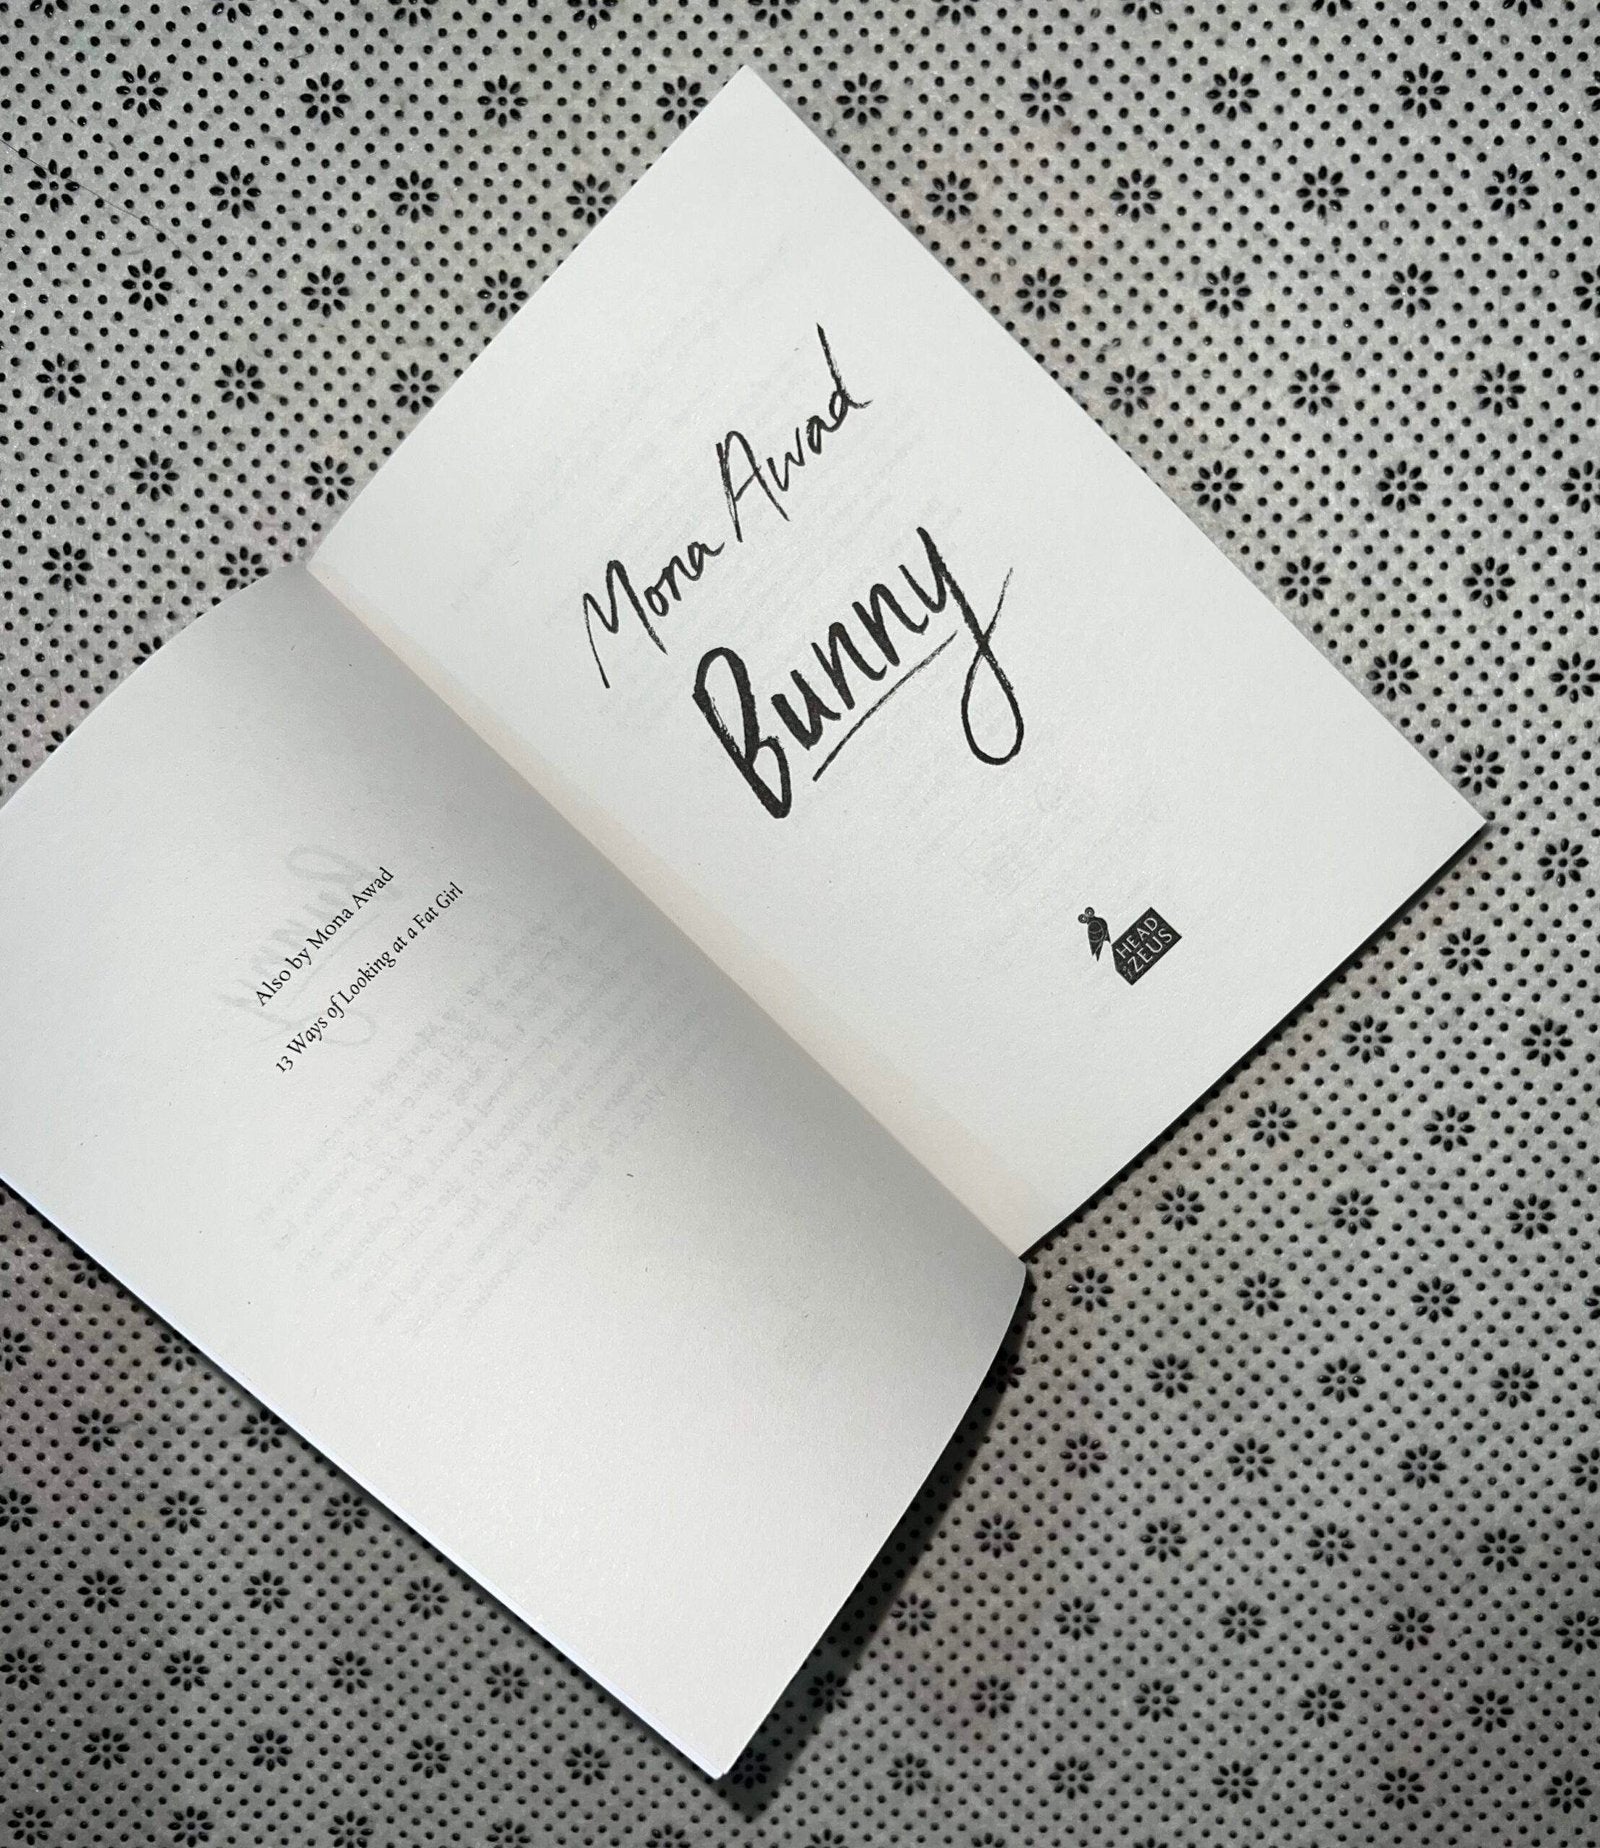 Also by Mona Awad
13 Ways of Looking at a Fat Girl
Mona Awad
Bunny
HEAD
of ZEUS